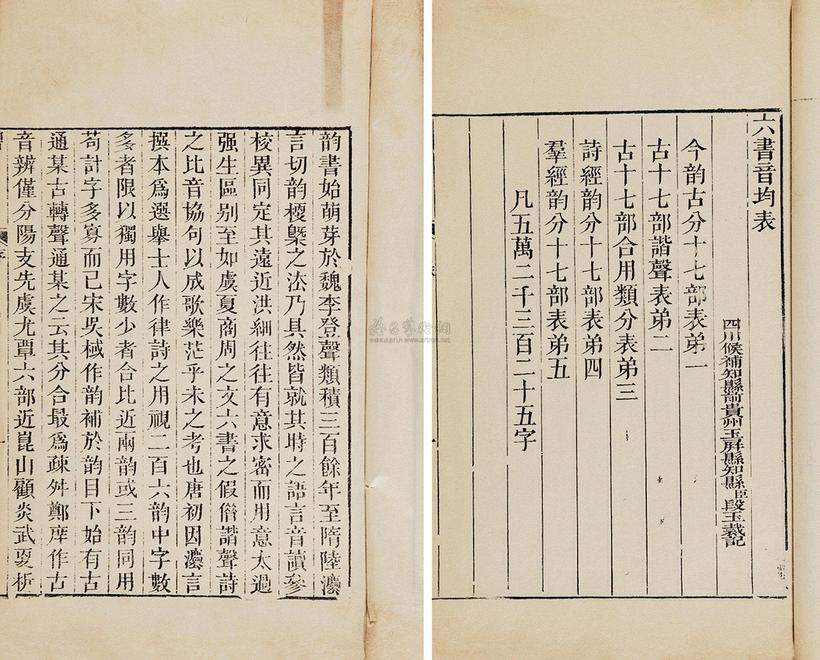 六書音均表
四川候補知縣前貴州玉屏縣知縣臣段玉裁記
今韵古分十七部表弟一
古十七部諧聲表弟二
古十七部合用類分表弟三
詩經韵分十七部表弟四
羣經韵分十七部表弟五
凡五萬二千三百二十五字
韵書始萌芽於魏李登聲類積三百餘年至隋陸灋
言切韵梗槩之法乃具然皆就其時之語言音讀參
校異同定其遠近洪細往往有意求密而用意太過
强生區别至如虞夏商周之文六書之假借諧聲詩
之比音協句以成歌樂茫乎未之考也唐初因灋言
撰本爲選舉士人作律詩之用視二百六韵中字數
多者限以獨用字數少者合比近兩韵或三韵同用
苟計字多寡而已宋吳棫作韵補於韵目下始有古
通某古轉聲通某之云其分合最爲疎舛鄭庠作古
音辨僅分陽支先虞尤覃六部近崑山顧炎武夏析